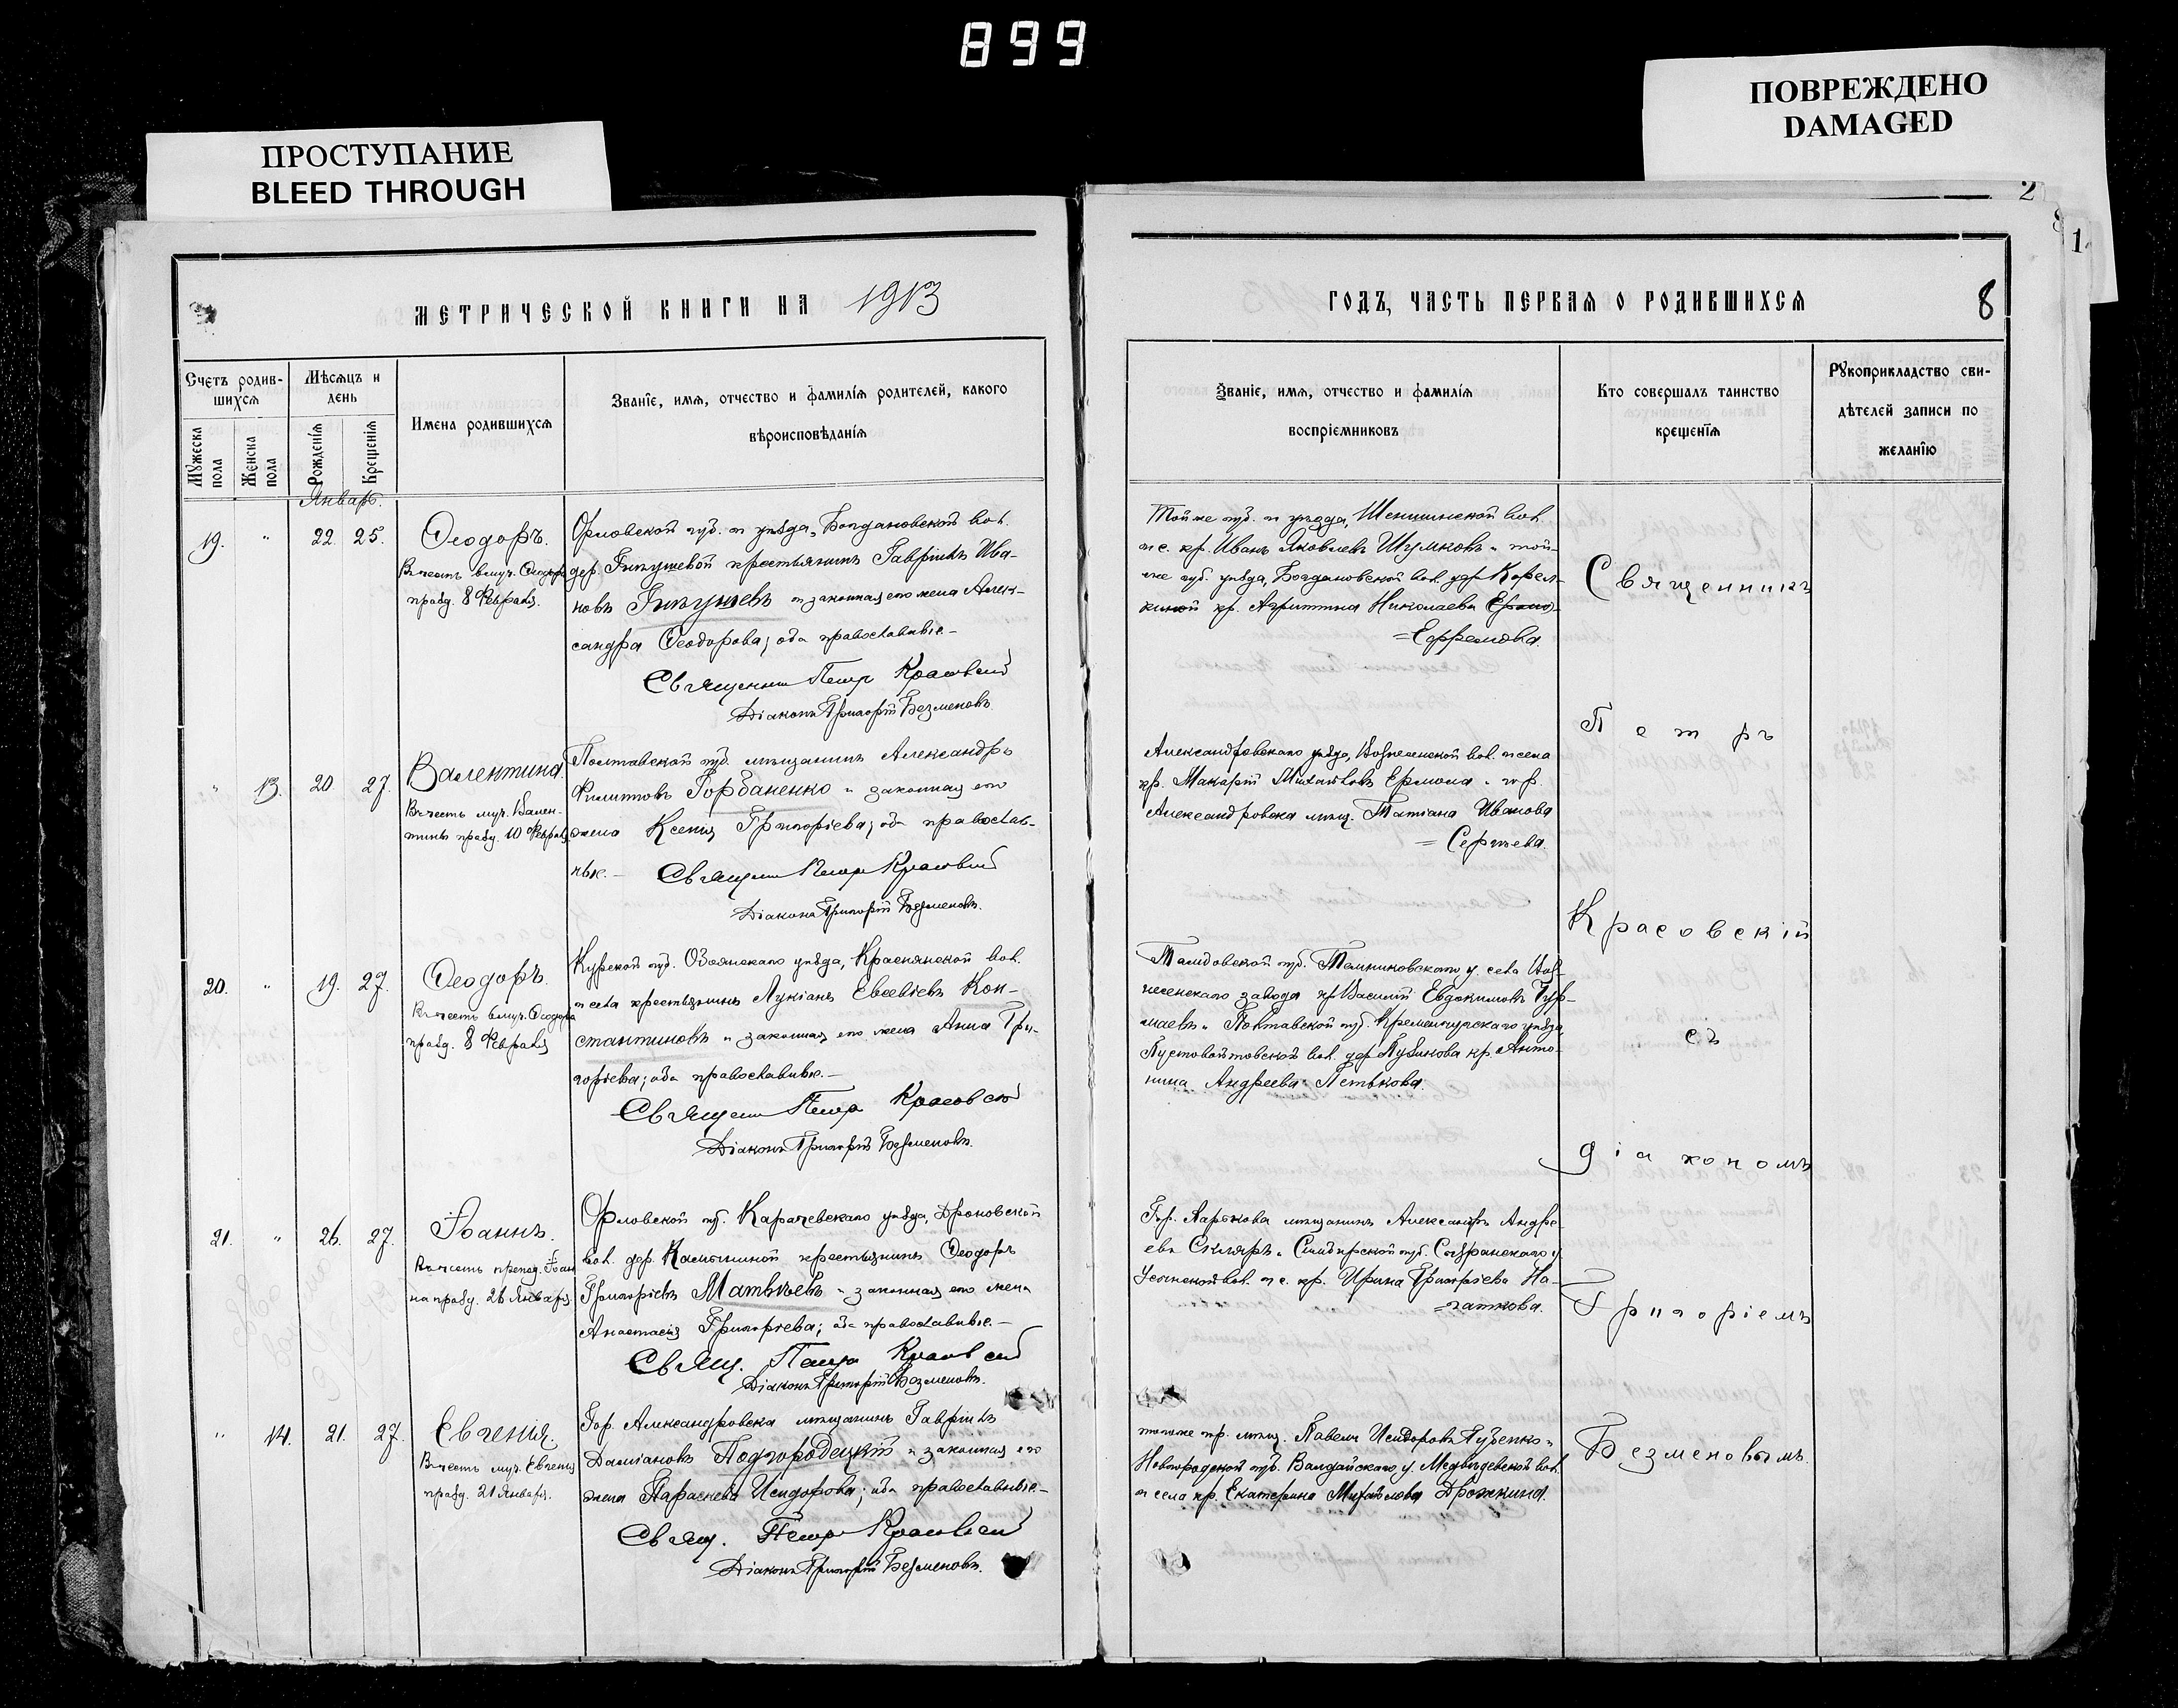 899
ПРОСТУПАНИЕ
BLEED THROUGH
ПОВРЕЖДЕНО
DAMAGED
2
1
МЕТРИЧЕСКОЙ КНИГИ НА 1913
Счетъ родив-
шихся
Мѣсяцъ и
день
Мужеска
пола
Женска
пола
Рожденія
Крещенія
Имена родившихся
Званіе, имя, отчество и фамилія родителей, какого
вѣроисповѣданія
Январь.
19. " 22. 25.
Ѳеодоръ.
Въ честь вмуч. Ѳеодора
празд. 8 Февраля.
Орловской губ. и уѣзда, Богдановской вол.
дер. крестьянинъ Гавріилъ Ива-
новъ и законная его жена Алек-
сандра Ѳеодорова; оба православные.
Священникъ Петръ Красовскій
Діаконъ Григорій Безменовъ.
" 13. 20. 27.
Валентина.
Въ честь муч. Вален-
тины празд. 10 Февраля.
Полтавской губ. мѣщанинъ Александръ
Филипповъ Горбаненко и законная его
жена Ксенія Григоріева; оба православ-
ные. Священникъ Петръ Красовскій
Діаконъ Григорій Безменовъ.
20. " 19. 27.
Ѳеодоръ.
Въ честь вмуч. Ѳеодора
празд. 8 Февраля
Курской губ. Обоянскаго уѣзда, Краснянской вол.
и села крестьянинъ Лукіанъ Евсевіевъ Кон-
стантиновъ и законная его жена Анна Гри-
горіева; оба православные.
Священникъ Петръ Красовскій
Діаконъ Григорій Безменовъ.
21. " 26. 27.
Іоаннъ.
Въ честь препод. Іоан
на празд. 26 Января.
Орловской губ. Карачевскаго уѣзда, Дроновской
вол. дер. крестьянинъ Ѳеодоръ
Григоріевъ Матвѣевъ и законная его жена
Анастасія Григоріева; оба православные.
Свящ. Петръ Красовскій
Діаконъ Григорій Безменовъ.
" 14. 21. 27.
Евгенія.
Въ честь муч. Евгеніи
празд. 21 Января.
Гор. Александровска мѣщанинъ Гавріилъ
Даміановъ Подгородецкій и законная его
жена Параскева Исидорова; оба православные.
Свящ. Петръ Красовскій
Діаконъ Григорій Безменовъ.
ГОДЪ, ЧАСТЬ ПЕРВАЯ О РОДИВШИХСЯ
8
Званіе, имя, отчество и фамилія
воспріемниковъ
Кто совершалъ таинство
крещенія
Рукоприкладство сви-
дѣтелей записи по
желанію
Той же губ. и уѣзда, вол.
и с. кр. Иванъ Яковлевъ Шумковъ и той-
же губ. уѣзда, Богдановской вол. дер. Корел-
киной кр. Агриппина Николаева
Ефремова.
Александровскаго уѣзда, Вознесенской вол. и села
кр. Макарій Михаиловъ Ермола и гор.
Александровска мѣщ. Татіана Иванова
Сергѣева.
Тамбовской губ. Темниковскаго у. села Воз-
несенскаго завода кр. Василій Евдокимовъ
и Полтавской губ. Кременчугскаго уѣзда
Пустовойтовской вол. дер. кр. Анто-
нина Андреева Петькова.
Гор. Харькова мѣщанинъ Александръ Андре-
евъ Скляръ и Симбирской губ. Сызранскаго у.
Усинской вол. и с. кр. Ирина Григоріева На-
гаткова.
тогоже гор. мѣщ. Павелъ Исидоровъ и
Новгородской губ. Валдайскаго у. Медвѣдевской вол.
и села кр. Екатерина Михаилова Дрожкина.
Священникъ
Петръ
Красовскій
съ
діакономъ
Григоріемъ
Безменовымъ.